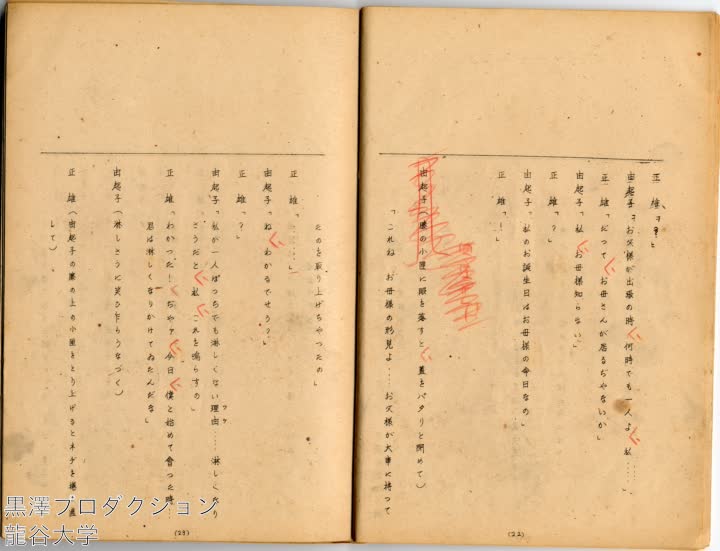 正 雄「？」
由起子「お父様が出張の時 何時でも一人よ 私……」
正 雄「だつて お母さんが居るぢやないか」
由起子「私 お母様知らない」
正 雄「？」
由起子「私のお誕生日はお母様の命日なの」
正 雄「！」
由起子（膝の小筐に眼を落すと 蓋をパタリと閉めて）
「これね お母様の形見よ…… お父様が大事に持つて
(22)
たのを取り上げちやつたの」
正 雄「……」
由起子「ね わかるでせう？」
正 雄「？」
由起子「私が一人ぼつちでも淋しくない理由…… 淋しくなり
ワケ
さうだと 私 これを鳴らすの」
正 雄「わかつた！ ぢやァ 今日 僕と始めて会つた時
君は淋しくなりかけてゐたんだな」
由起子（淋しさうに笑ひ乍らうなづく）
正 雄（由起子の膝の上の小筐をとり上げるとネヂを捲き直
して）
(23)
黒澤プロダクション
龍谷大学